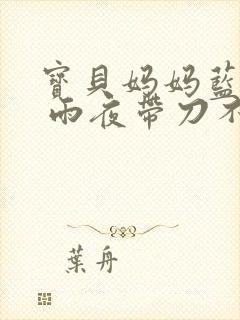 寶貝妈妈藍
雨夜帶刀不
葉舟